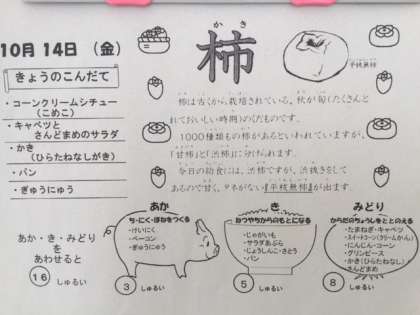 10月14日（金）
きょうのこんだて
・コーンクリームシチュー
（こめこ）
・キャベツと
さんどまめのサラダ
・かき
（ひらたねなしがき）
・パン
・ぎゅうにゅう
かき
柿
平核無柿
柿は古くから栽培されている、秋が旬(たくさんと
れておいしい時期)のくだものです。
1000種類もの柿があるといわれていますが、
「甘柿」と「渋柿」に分けられます。
今日の給食には、渋柿ですが、渋抜きをして
あるので甘く、タネがない『平核無柿』が出ます。
あか・き・みどり
を
あわせると
16 しゅるい
あか
ち・にく・ほねをつくる
・けいにく
・ベーコン
・ぎゅうにゅう
3 しゅるい
き
ねつやちから
になる
・じゃがいも
・サラダあぶら
・じょうしんこ・さとう
・パン
5 しゅるい
みどり
からだのちょうしをととのえる
・たまねぎ・キャベツ
・スイートコーン(クリームかん)
・にんじん・コーン
・グリンピース
・かき(ひらたねなし)
・さんどまめ
8 しゅるい